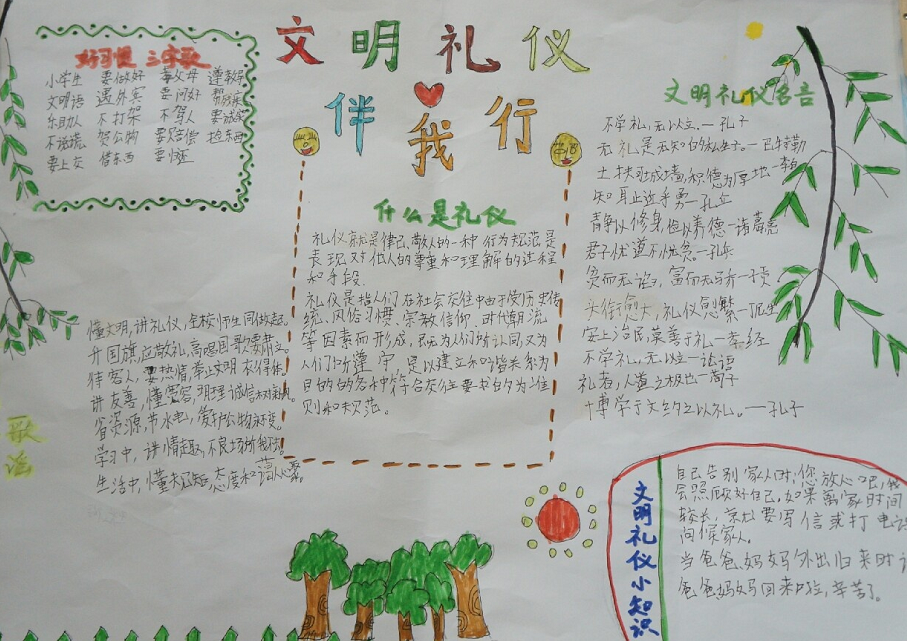 文明礼仪
伴我行
好习惯 三字歌
小学生 要做好 尊父母 遵教导
文明语 遇外宾 要问好
乐助人 不打架 不骂人 要诚实
不说谎 贺公物 要赔偿 拾东西
要上交 借东西 要归还
什么是礼仪
礼仪就是律己、敬人的一种行为规范是
表现对他人的尊重和理解的过程
和手段
礼仪是指人们在社会交往中由于受历史传
统、风俗习惯、宗教信仰、时代潮流
等因素而形成，既为人们所认同又为
人们所遵守，是以建立和谐关系为
目的的各种符合交往要求的为准
则和规范。
文明礼仪名言
不学礼，无以立。—孔子
无礼是无知的私生子。—巴特勒
土扶可成墙，积德为厚地—李白
知耻近乎勇—孔丘
静以修身，俭以养德—诸葛亮
君子忧道不忧贫。—孔丘
贫而无谄，富而无骄—子贡
头衔愈大，礼仪愈繁—
安上治民莫善于礼—孝经
不学礼，无以立—论语
礼者，人道之极也—荀子
博学于文约之以礼。—孔子
歌谣
懂文明，讲礼仪，全校师生同做起。
升国旗，应敬礼，高唱国歌要肃立。
待客人，要热情，举止文明衣得体。
讲友善，懂宽容，明理诚信树新风。
省资源，节水电，爱护公物
学习中，讲情趣，不良场所我不去。
生活中，懂
文明礼仪小知识
自己告别家人时，您放心吧，我
会照顾好自己，如果离家时间
较长，就要写信或打电话
问候家人。
当爸爸、妈妈外出归来时
爸爸妈妈回来啦，辛苦了。